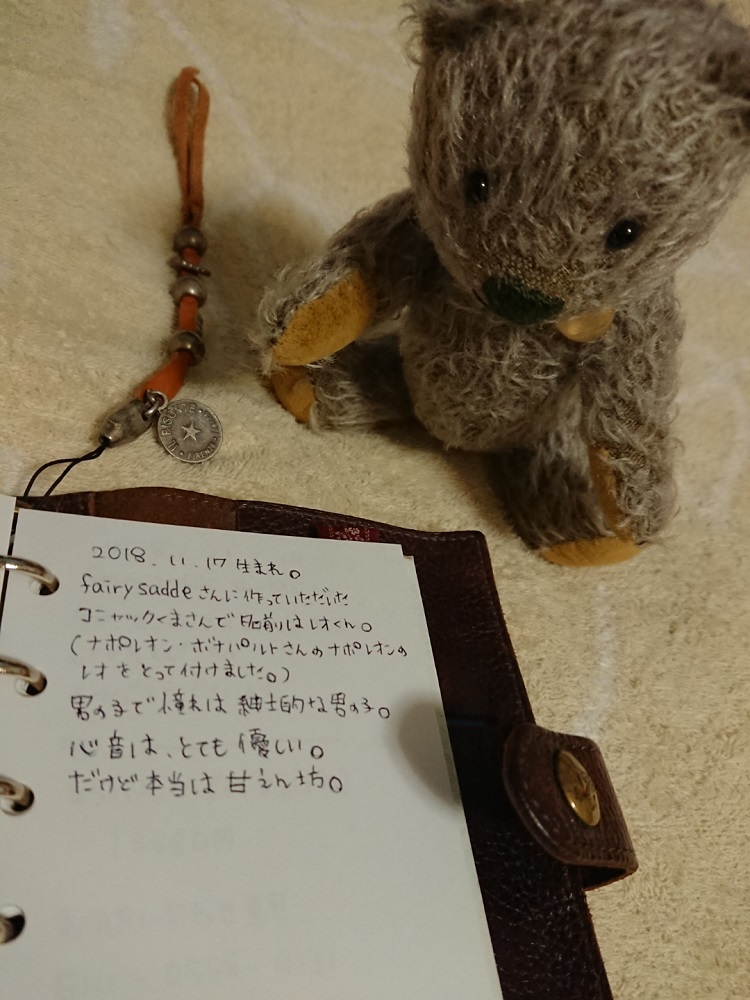 IL BISONTE
FIRENZE
2018.11.17生まれ。
fairysaddeさんに作っていただいた
コニャックくまさんで名前はレオくん。
(ナポレオン・ボナパルトさんのナポレオンの
レオをとって付けました。)
男の子で憧れは紳士的な男の子。
心音は、とても優しい。
だけど本当は甘えん坊。